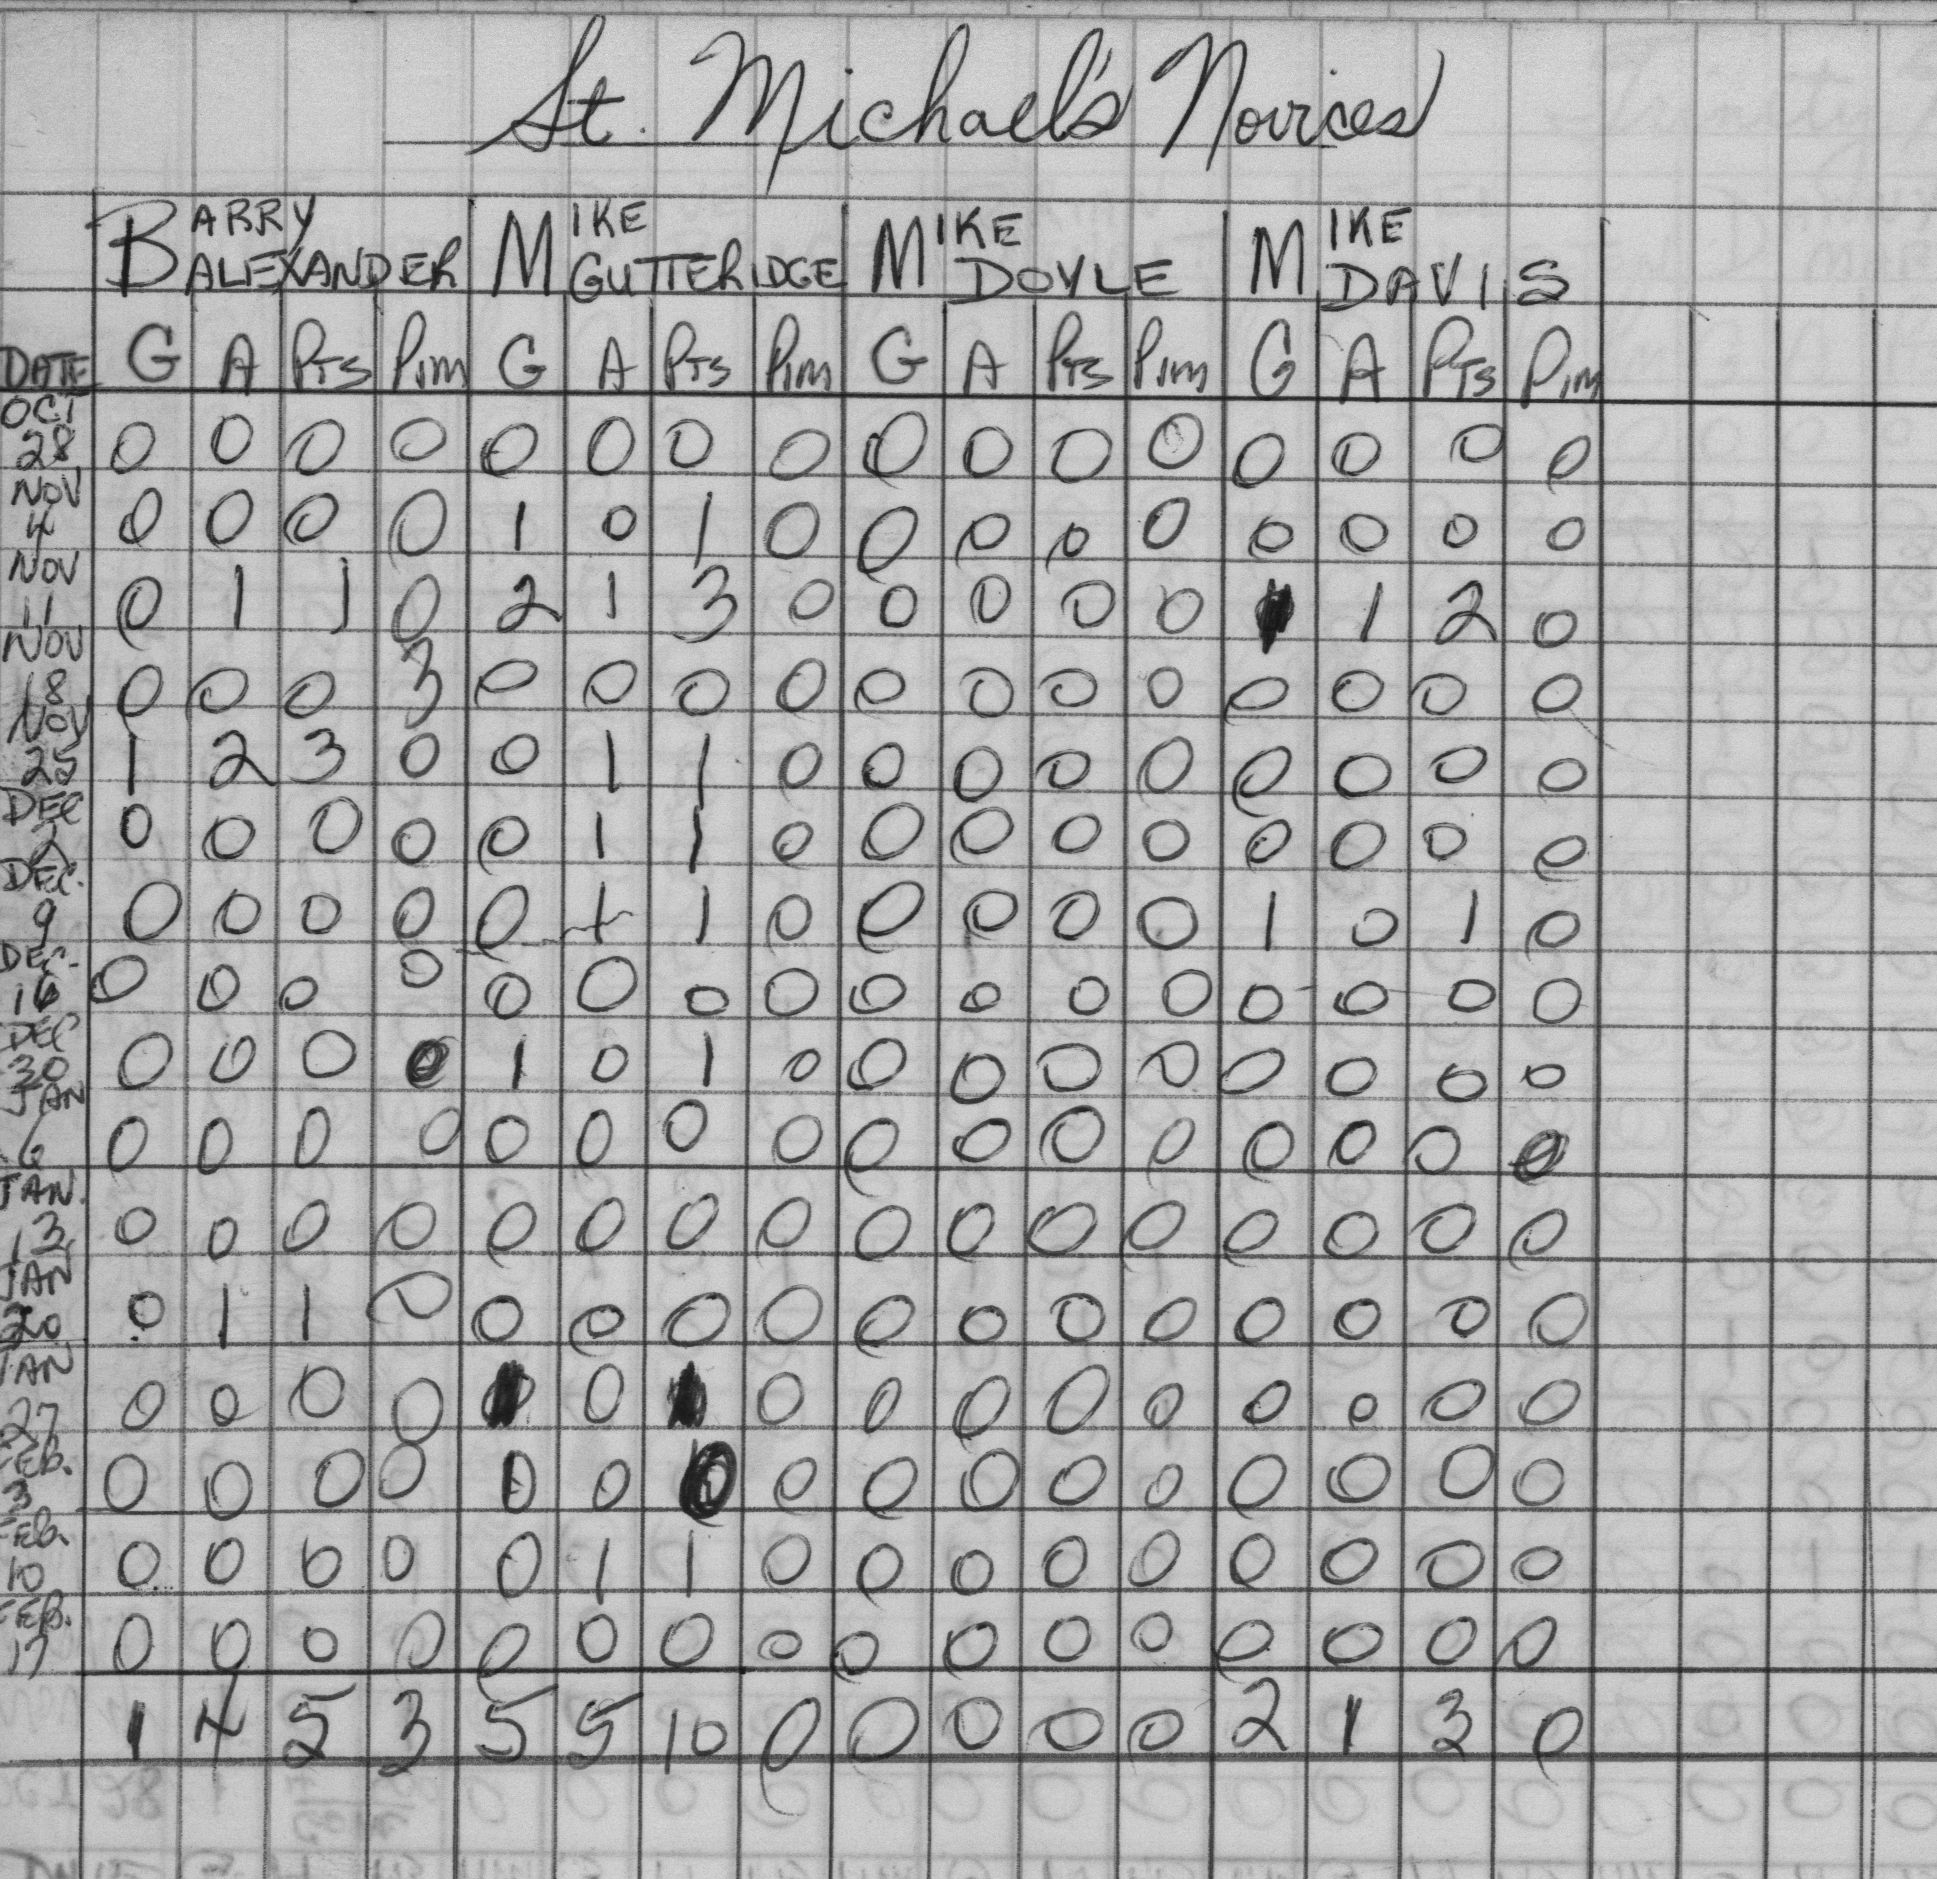 St. Michael's Novices
BARRY ALEXANDER MIKE GUTTERIDGE MIKE DOYLE MIKE DAVIS
DATE G A PTS Pim G A PTS Pim G A PTS Pim G A PTS Pim
OCT 28 0 0 0 0 0 0 0 0 0 0 0 0 0 0 0 0
NOV 4 0 0 0 0 1 0 1 0 0 0 0 0 0 0 0 0
NOV 11 0 1 1 0 2 1 3 0 0 0 0 0 1 1 2 0
NOV 18 0 0 0 3 0 0 0 0 0 0 0 0 0 0 0 0
NOV 25 1 2 3 0 0 1 1 0 0 0 0 0 0 0 0 0
DEC 2 0 0 0 0 0 1 1 0 0 0 0 0 0 0 0 0
DEC. 9 0 0 0 0 0 1 1 0 0 0 0 0 1 0 1 0
DEC. 16 0 0 0 0 0 0 0 0 0 0 0 0 0 0 0 0
DEC 30 0 0 0 0 1 0 1 0 0 0 0 0 0 0 0 0
JAN 6 0 0 0 0 0 0 0 0 0 0 0 0 0 0 0 0
JAN. 13 0 0 0 0 0 0 0 0 0 0 0 0 0 0 0 0
JAN 20 0 1 1 0 0 0 0 0 0 0 0 0 0 0 0 0
JAN 27 0 0 0 0 1 0 1 0 0 0 0 0 0 0 0 0
FEB. 3 0 0 0 0 0 0 0 0 0 0 0 0 0 0
FEB. 10 0 0 0 0 0 1 1 0 0 0 0 0 0 0 0 0
FEB. 17 0 0 0 0 0 0 0 0 0 0 0 0 0 0 0 0
1 4 5 3 5 5 10 0 0 0 0 0 2 1 3 0